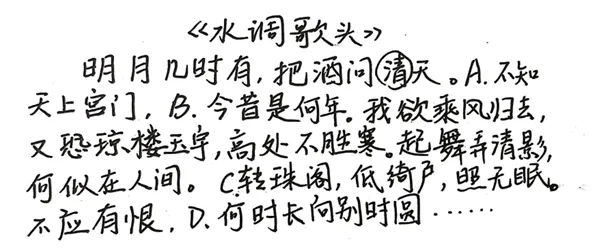 《水调歌头》
明月几时有,把酒问清天。A.不知
天上宫门,B.今昔是何年。我欲乘风归去,
又恐琼楼玉宇,高处不胜寒。起舞弄清影,
何似在人间。C.转珠阁,低绮户,照无眠。
不应有恨,D.何时长向别时圆……